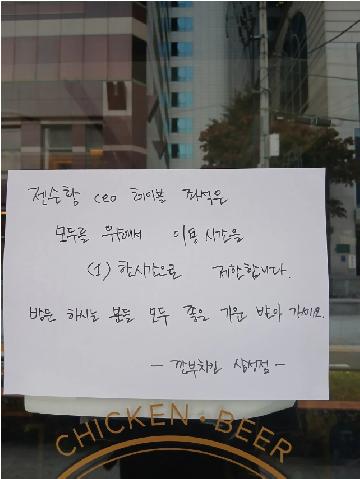 젠슨황 CEO 테이블 좌석은
모두를 위해서 이용시간을
(1) 한시간으로 제한합니다.
방문 하시는 분들 모두 좋은 기운 받아 가세요.
- 깐부치킨 삼성점 -
CHICKEN · BEER